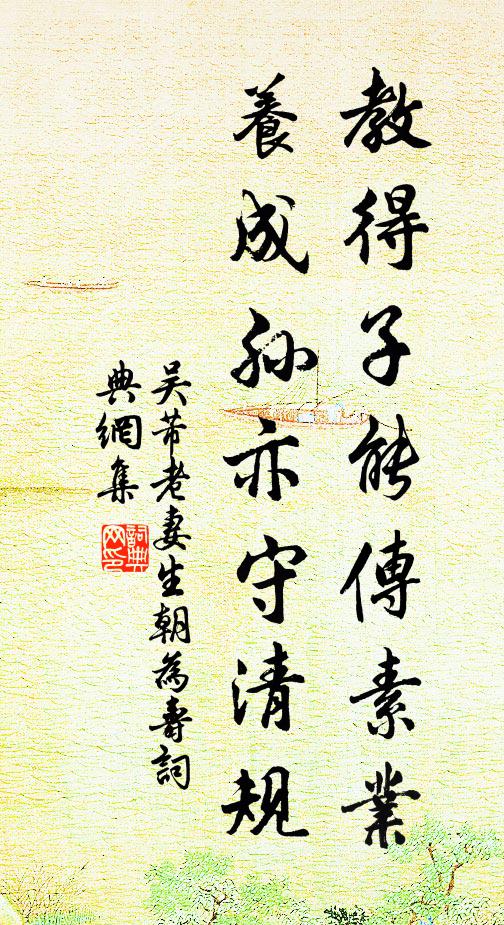 教得子能傳素業
養成孙亦守清規
吴芾老妻生朝為壽詞
典網集
詞典
网印